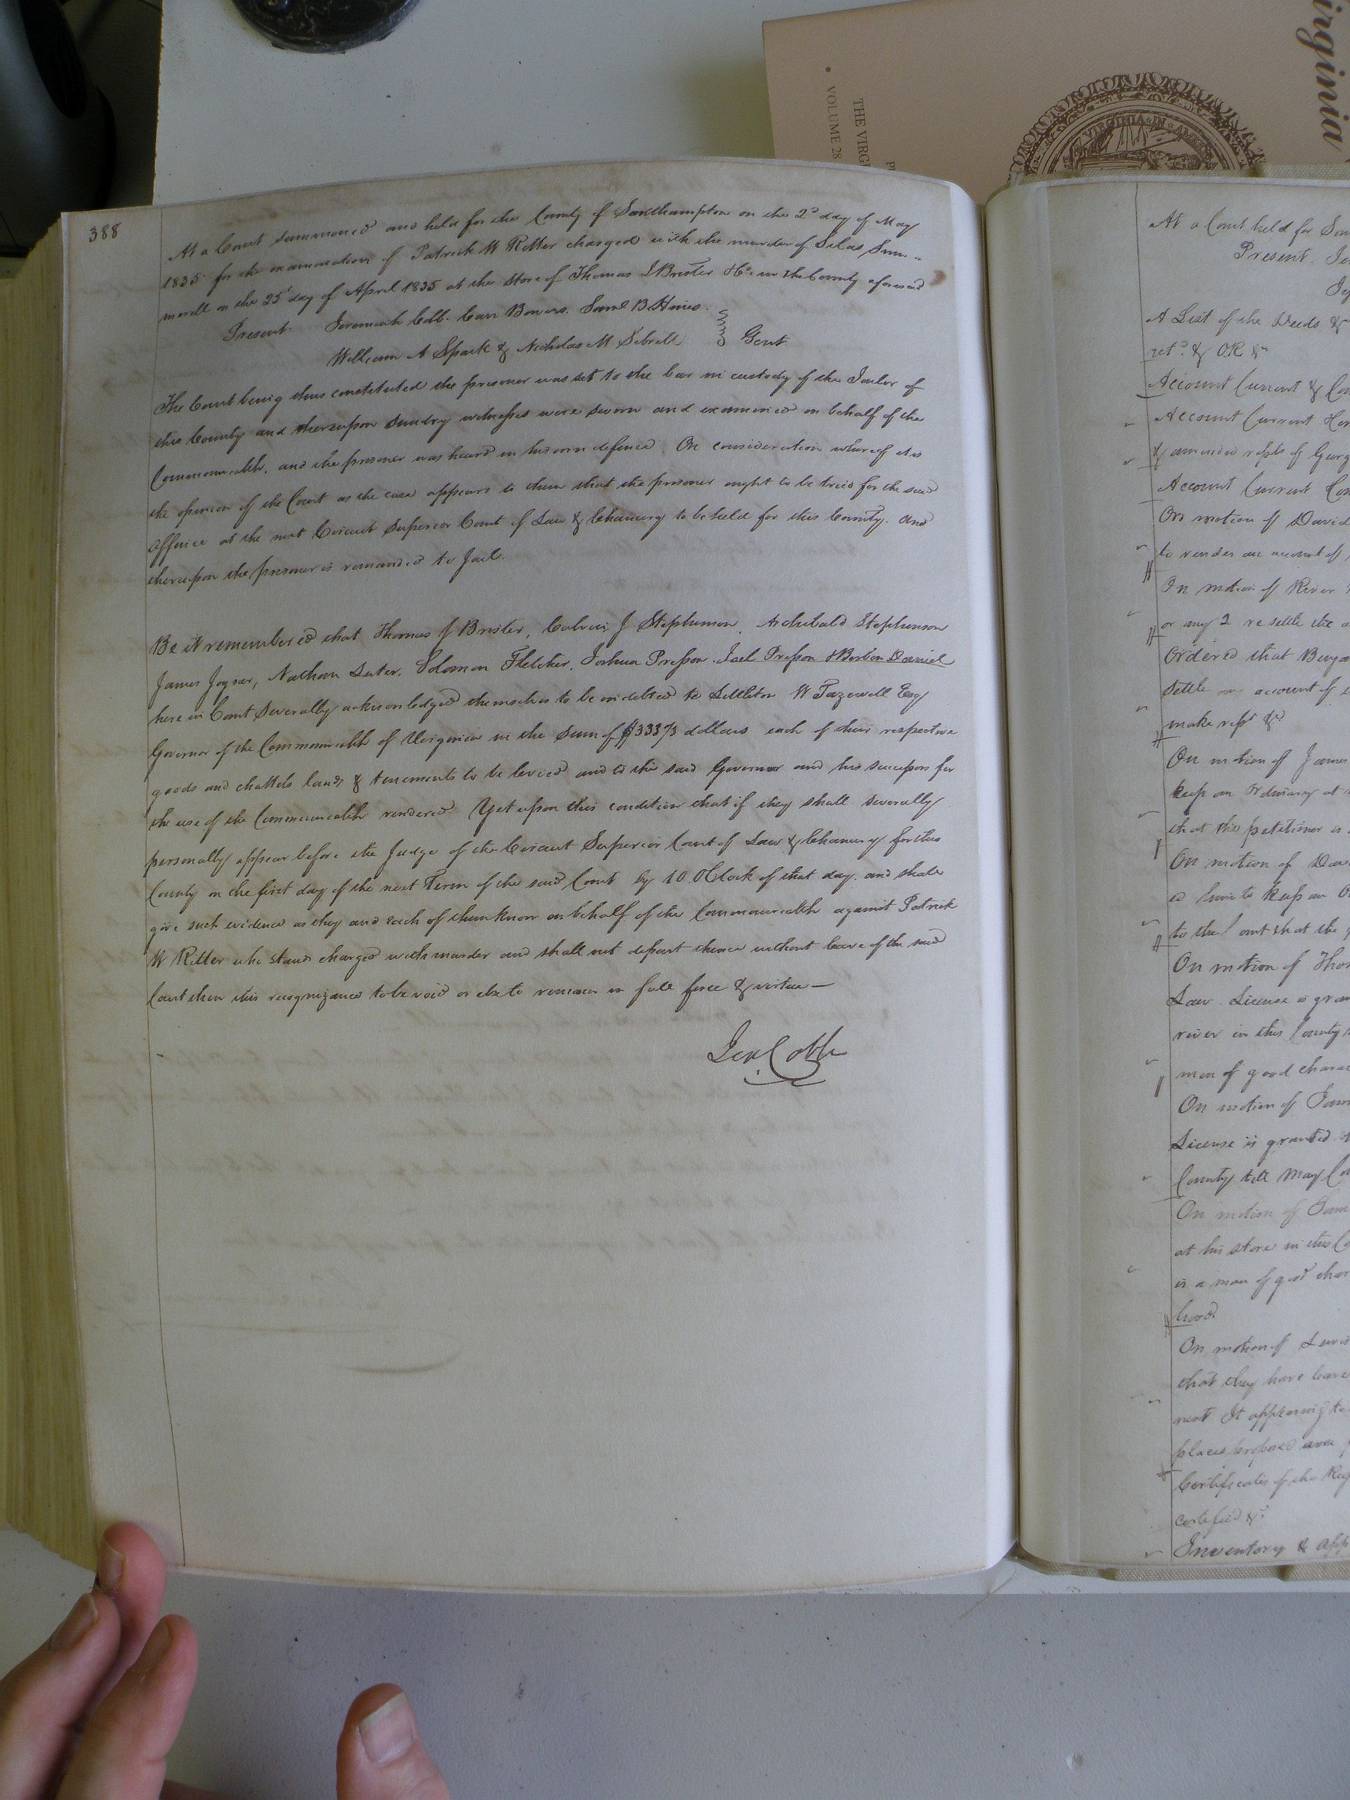 irginia
THE VIRG
VOLUME 28
VIRGINIA IN
388
At a Court summoned and held for the County of Southampton on the 2d day of May
1835 for the examination of Patrick W Ritter charged with the murder of Silas Sum-
merell on the 25th day of April 1835 at the store of Thomas J Brister & Co in the County aforesaid
Present Jeremiah Cobb. Carr Bowers. Saml B. Hines.
William A Spark & Nicholas M Sebrell Gent
The Court being thus constituted the prisoner was set to the bar in custody of the Jailor of
this County and thereupon sundry witnesses were sworn and examined on behalf of the
Commonwealth, and the prisoner was heard in his own defence. On consideration whereof it is
the opinion of the Court as the case appears to them that the prisoner ought to be tried for the said
offence at the next Circuit Superior Court of Law & Chancery to be held for this County. and
thereupon the prisoner is remanded to Jail.
Be it remembered that Thomas J Brister, Calvin J Stephenson, Archibald Stephenson
James Joyner, Nathan Luter, Solomon Fletcher, Joshua Presson, Joel Presson & Borban Daniel
here in Court severally acknowledged themselves to be indebted to Littleton W Tazewell Esqr
Governor of the Commonwealth of Virginia in the sum of $333 1/3 dollars each of their respective
goods and chattels lands & tenements to be levied and to the said Governor and his successors for
the use of the Commonwealth rendered Yet upon this condition that if they shall severally
personally appear before the Judge of the Circuit Superior Court of Law & Chancery for this
County on the first day of the next Term of the said Court by 10 O'Clock of that day. and shall
give such evidence as they and each of them know on behalf of the Commonwealth against Patrick
W Ritter who stands charged with murder and shall not depart thence without leave of the said
Court then this recognizance to be void or else to remain in full force & virtue —
Jer Cobb
At a Court held for Sou
Present. Je
A List of the Deeds &
ret. & OR &
Account Current &
Account Current
& amended rept of Georg
Account Current
On motion of David
to render an account of
On motion of River
or any 2 re settle the
Ordered that Benja
settle an account of
make rept &c
On motion of James
keep an Ordinary at
that the petitioner is
On motion of
to keep an O
to the Court that the
On motion of Tho
Law. License is gran
river in this County
man of good charac
On motion of
License is granted
County till May Co
On motion of
at his store in the Co
is a man of good char
hood.
On motion of Lewis
that they have
next It appearing to
places proposed
Certificates of the Reg
certified &c
Inventory & app